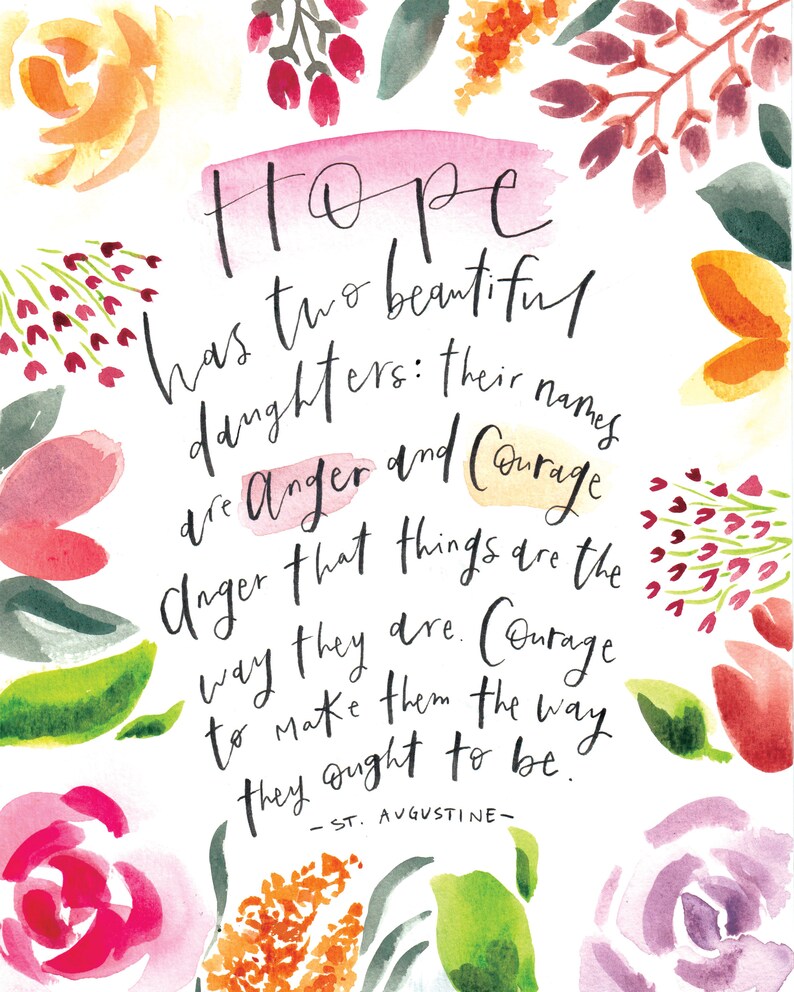 Hope
has two beautiful
daughters: their names
are anger and Courage
Anger that things are the
way they are. Courage
to make them the way
they ought to be.
- ST. AUGUSTINE -